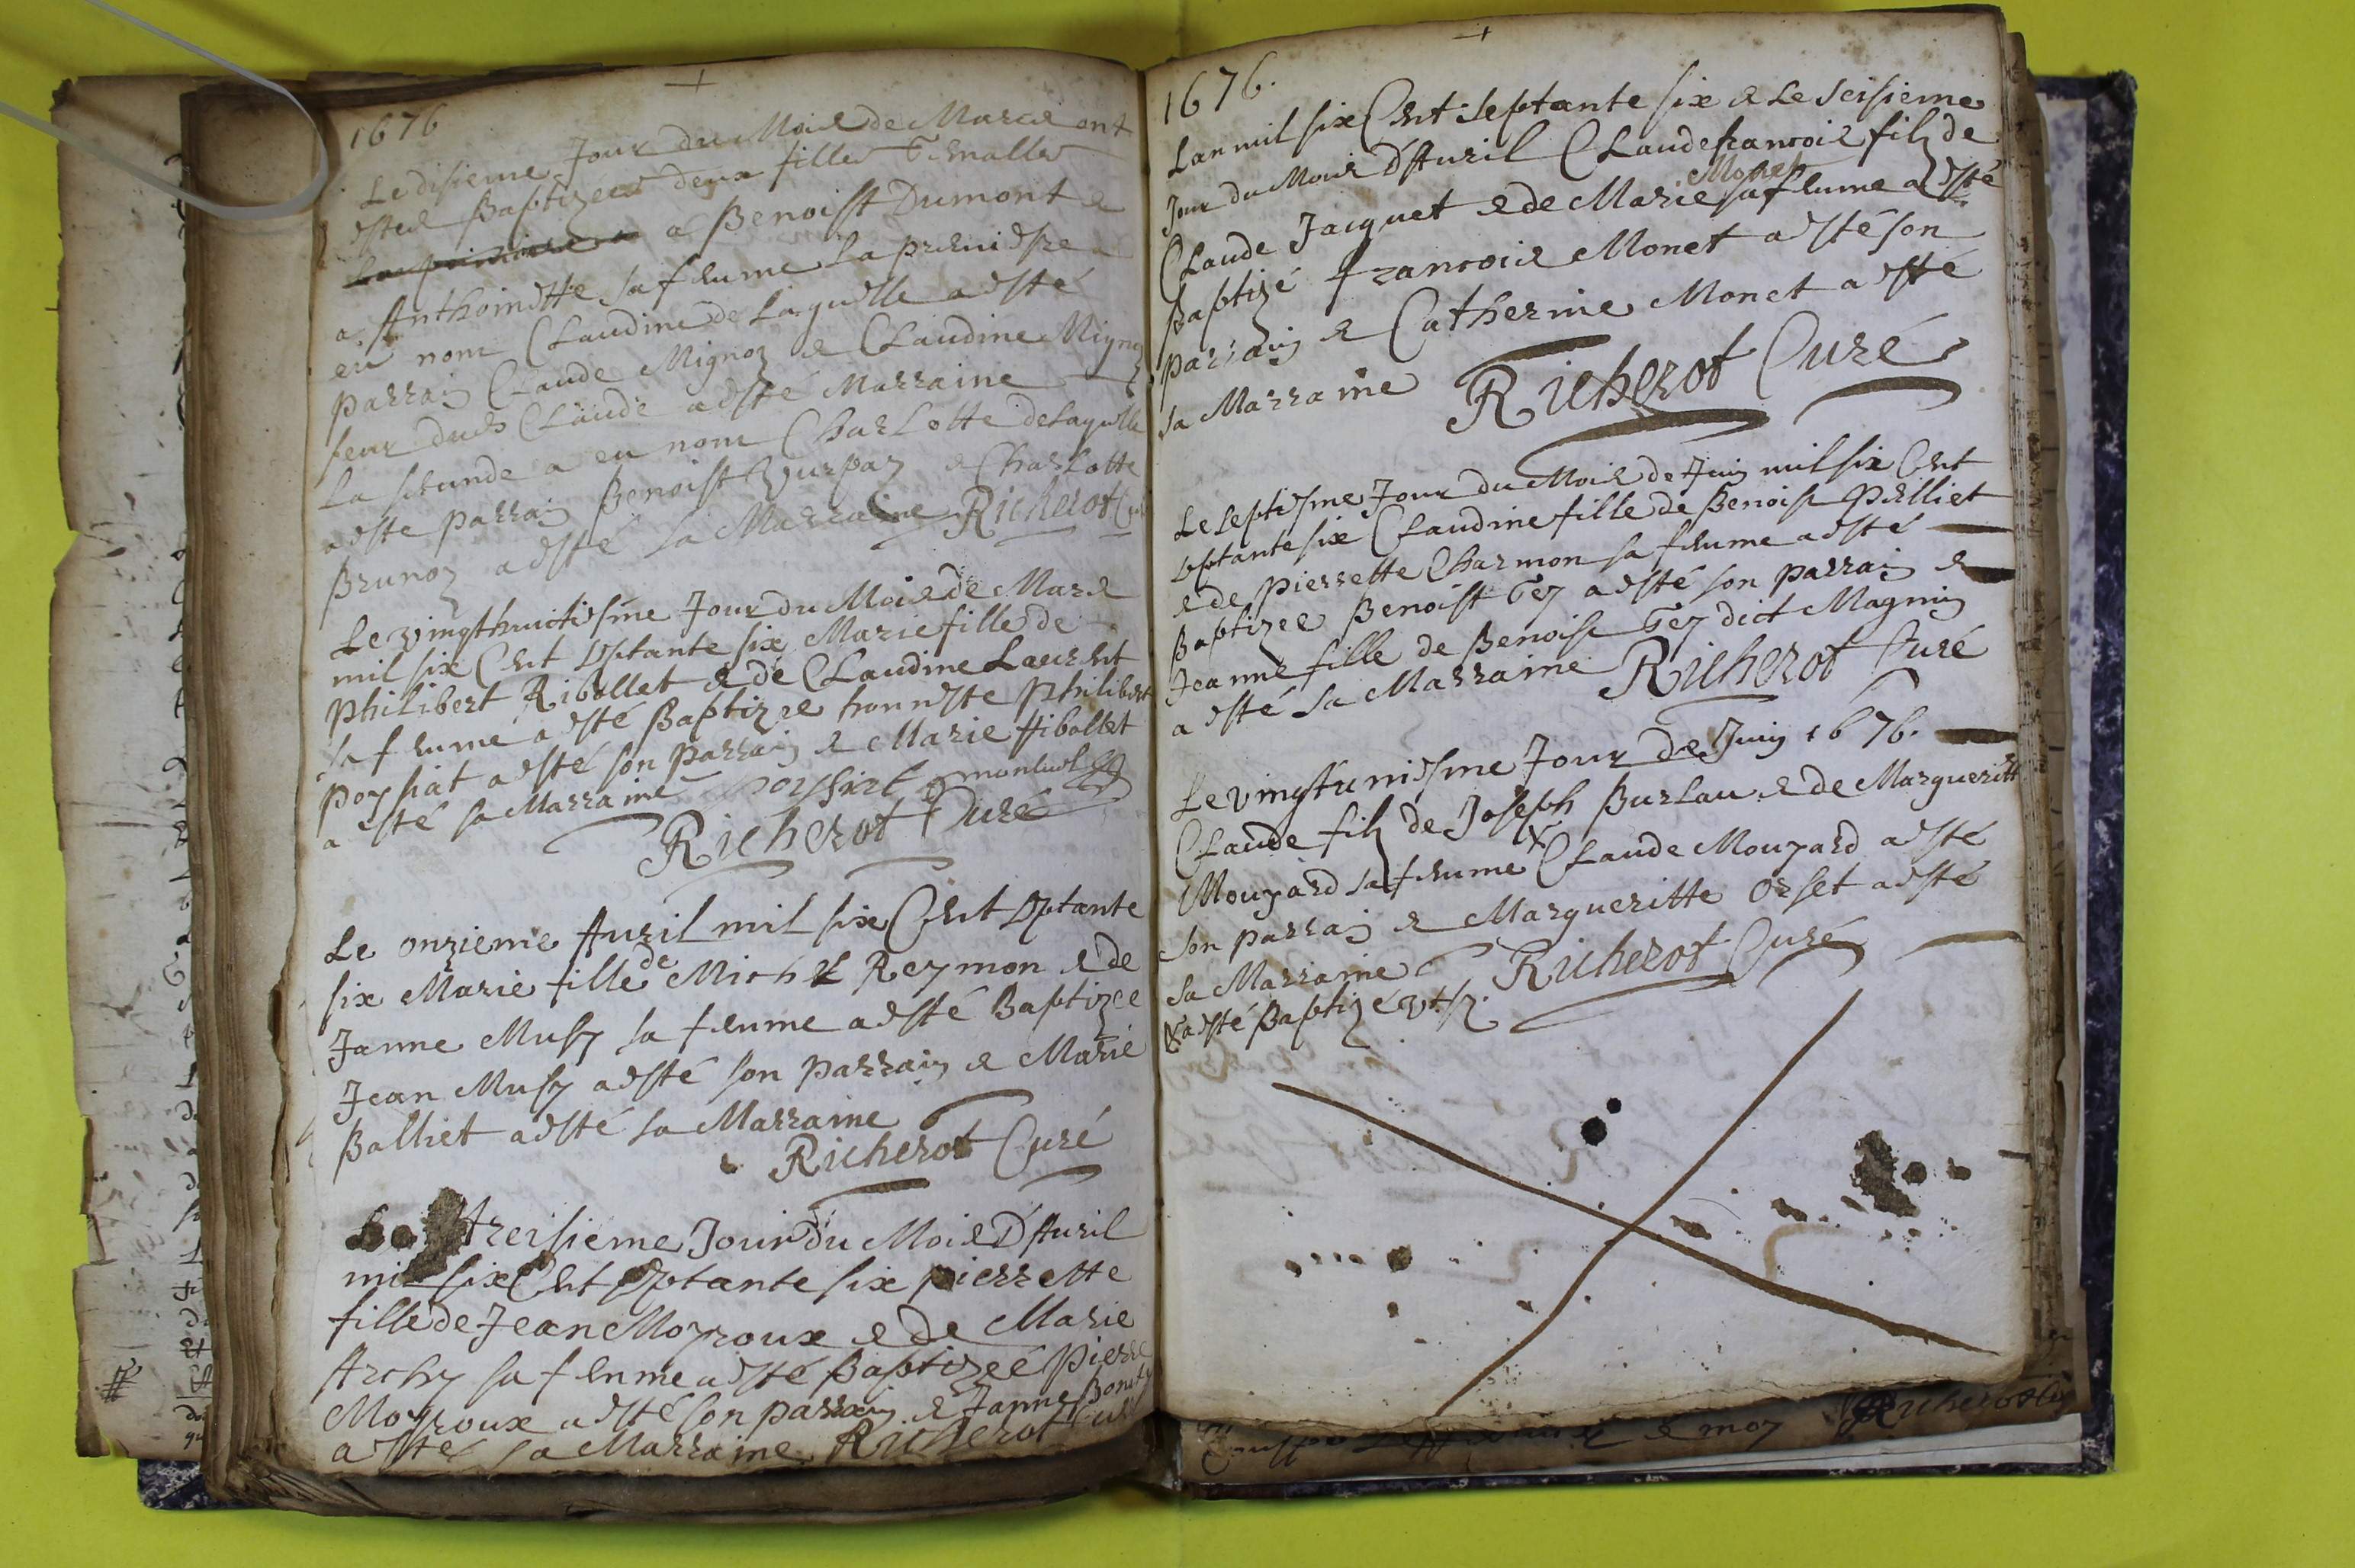 1676
Le disieme Jour du Mois de Mars ont
estes Baptizées deux filles
a Benoist Dumont &
a Anthoinette sa femme La premiere a
eu nom Claudine de Laquelle a esté
parrain Claude Mignoz & Claudine Mignoz
seur dudt Claude a esté Marraine
La seconde a eu nom Charlotte de Laquelle
a este parrain Benoist & Charlotte
Brunoz a esté sa Marraine Richerot
Le vingthuictiesme Jour du Mois de Mars
mil six Cent septante six Marie fille de
philibert Ribollet & de Claudine Laurent
sa femme a esté Baptizee honneste philibert
poysiat a esté son parrain & Marie Ribollet
a esté sa Marraine
Richerot Curé
Le onzieme Auril mil six Cent septante
six Marie fille de Michel Reymon & de
Janne Musy sa femme a esté Baptizee
Jean Musy a esté son parrain & Marie
Balliet a esté sa Marraine
Richerot Curé
Le treisieme Jour du Mois D'Auril
mil six Cent septante six pierrette
fille de Jean Moyroux & de Marie
Archy sa femme a esté Baptizeé pierre
Moyroux a esté son parrain & Janne
a esté sa Marraine Richerot Curé
1676.
Lan mil six Cent septante six & Le seisieme
Jour du Mois D'Auril Claude francois filz de
Claude Jacquet & de Marie Monet sa femme a esté
Baptizé francois Monet a esté son
parrain & Catherine Monet a esté
sa Marraine Richerot Curé
Le septiesme Jour du Mois de Juin mil six Cent
septante six Claudine fille de Benoist pelliet
& de pierrette Charmon sa femme a esté
Baptizee Benoist Gey a esté son parrain &
Jeanne fille de Benoist Gey dict Magnin
a esté sa Marraine Richerot Curé
Le vingtuniesme Jour de Juin 1676.
Claude filz de Joseph Burlau & de Margueritte
Mouyard sa femme X Claude Mouyard a esté
son parrain & Margueritte Orset a esté
sa Marraine Richerot Curé
X a esté Baptizé